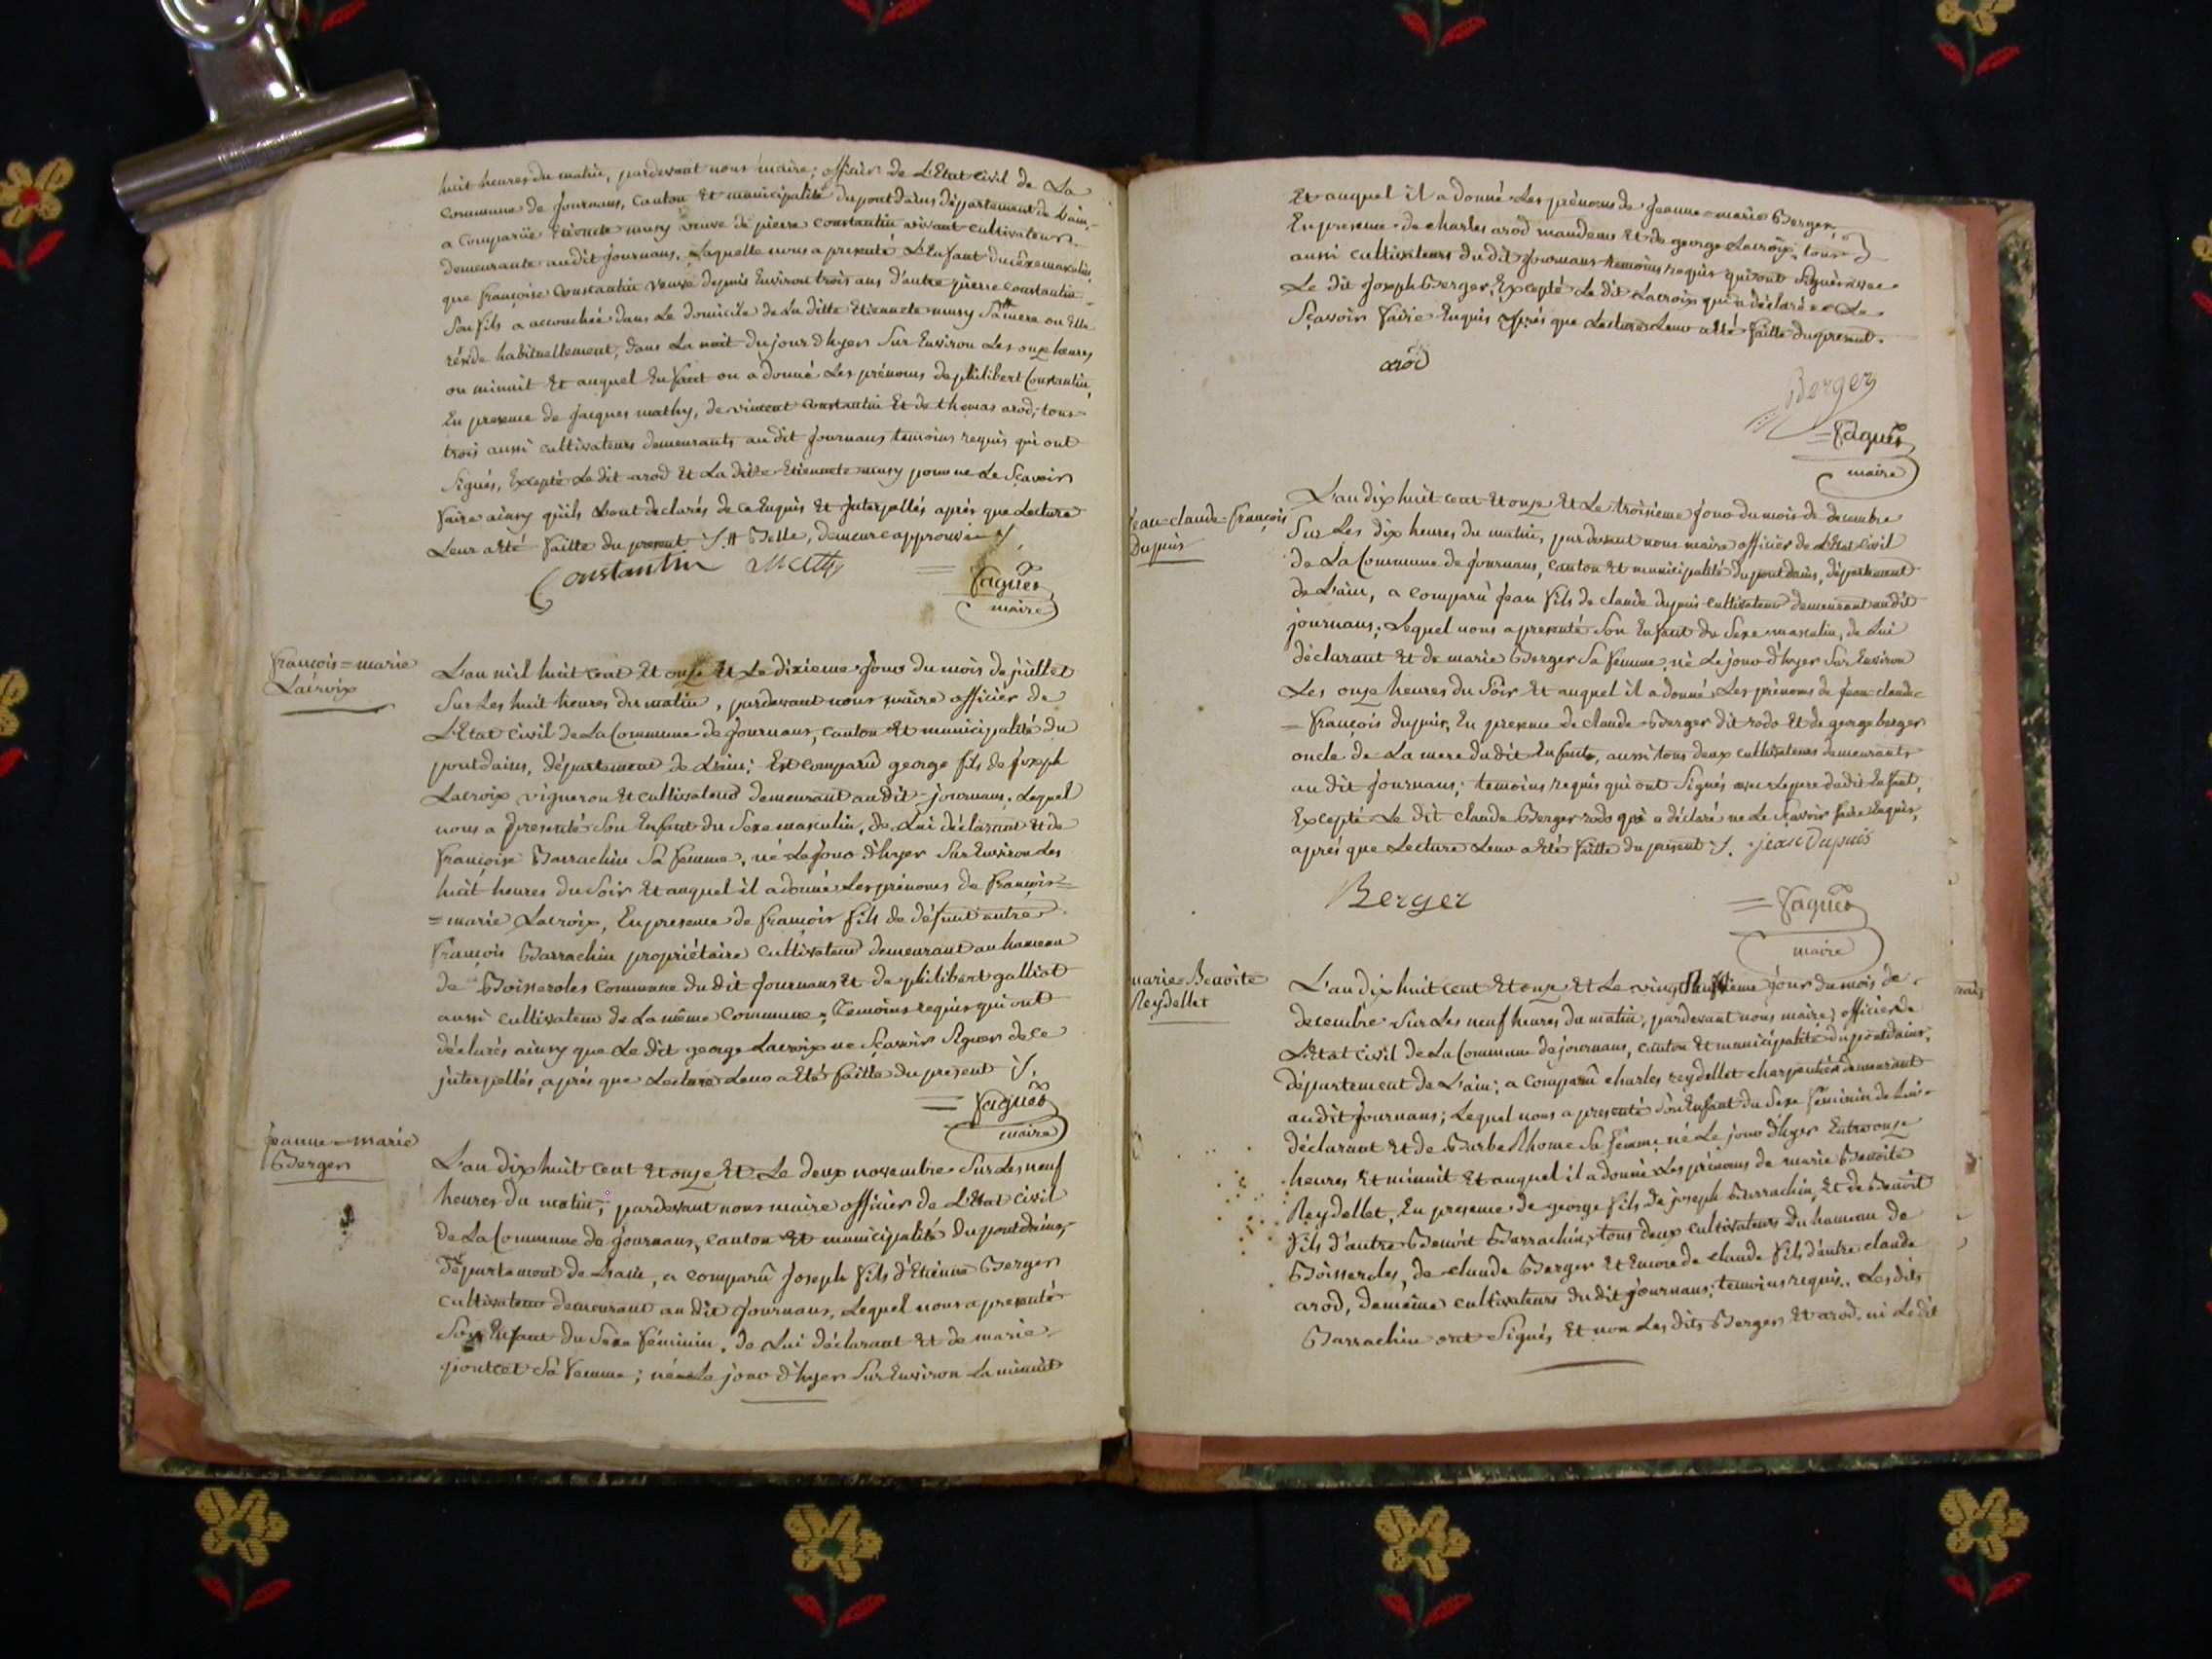 huit heures du matin, pardevant nous maire; officier de L'Etat civil de La
Commune de journans, Canton Et municipalité du pontdains département de L'ain,
a Comparüe Etiennete musy veuve de pierre constantin vivant cultivateur
demeurante audit journans, Laquelle nous a presenté L'Enfant du sexe masculin
que françoise constantin veuve depuis Environ trois ans d'autre pierre constantin
Son fils a accouchée dans Le domicile de La ditte Etiennete musy Sa # mere ou Elle
réside habituellement, dans La nuit du jour d'hyer Sur Environ Les onze heures
ou minuit Et auquel Enfant on a donné Les prénoms de philibert Constantin,
En presence de jacques mathy, de vincent constantin Et de thomas arod, tous
trois aussi cultivateurs demeurants au dit journans temoins requis qui ont
Signés, Excepté Le dit arod Et La ditte Etiennete musy pour ne Le Sçavoir
faire ainsy qu'ils L'ont declarés de ce Enquis Et jnterpellés après que Lecture
Leur a Eté faitte du present ./. # Belle, demeure approuvé ./.
Constantin Mathy
= fagues
maire
françois=marie
Lacroix
L'an mil huit cent Et onze Et Le dixieme jour du mois de juillet
Sur Les huit heures du matin, pardevant nous maire officier de
L'Etat civil de La Commune de journans, canton Et municipalité du
pontdains, département de L'ain; Est Comparû george fils de joseph
Lacroix vigneron Et cultivateur demeurant audit journans. Lequel
nous a presenté Son Enfant du Sexe masculin, de Lui déclarant Et de
françoise Barrachin Sa femme, né Le jour d'hyer Sur Environ Les
huit heures du Soir Et auquel il a donné Les prénoms de françois=
=marie Lacroix, En presence de françois fils de défunt autre
françois Barrachin propriétaire cultivateur demeurant au hameau
de Boisseroles Commune du dit journans Et de philibert galliot
aussi cultivateur de La même Commune, Temoins requis qui ont
déclarés ainsy que Le dit george Lacroix ne Sçavoir Signer de ce
jnterpellés, après que Lecture Leur a Eté faitte du present ./.
= fagues
maire
jeanne=marie
Berger
L'an dix huit cent Et onze Et Le deux novembre Sur Les neuf
heures du matin, pardevant nous maire officier de L'Etat civil
de La Commune de journans, canton Et municipalité du pontdains,
département de L'ain, a comparû joseph fils d'Etienne Berger
cultivateur demeurant au dit journans, Lequel nous a presenté
Son Enfant du Sexe féminin, de Lui déclarant Et de marie
pontcet Sa femme; née Le jour d'hyer Sur Environ La minuit
Et auquel il a donné Les prénoms de jeanne=marie Berger,
En presence de charles arod mandem Et de george Lacroix, tous
aussi cultivateurs du dit journans temoins requis qui ont Signés avec
Le dit joseph Berger, Excepté Le dit Lacroix qui a déclaré ne Le
Sçavoir faire Enquis après que Lecture Leur a Eté faitte du present.
arod
Berger
= fagues
maire
jean=claude=françois
Dupuis
L'an dix huit cent Et onze Et Le troisieme jour du mois de decembre
Sur Les dix heures du matin, pardevant nous maire officier de L'Etat civil
de La Commune de journans, canton Et municipalité du pontdains, département
de L'ain, a comparû jean fils de claude dupuis cultivateur demeurant audit
journans; Lequel nous a presenté Son Enfant du Sexe masculin, de Lui
déclarant Et de marie Berger Sa femme, né Le jour d'hyer Sur Environ
Les onze heures du Soir Et auquel il a donné Les prénoms de jean=claude
=françois dupuis, En presence de claude Berger dit rodo Et de george berger
oncle de La mere du dit Enfant, aussi tous deux cultivateurs demeurants
au dit journans; temoins requis qui ont Signés avec Le pere du dit Enfant,
Excepté Le dit claude Berger rodo qui a déclaré ne Le Sçavoir faire Enquis,
après que Lecture Leur a Eté faitte du présent ./. jean Dupuis
Berger
= fagues
maire
marie=Benoite
Reydellet
L'an dix huit cent Et onze Et Le vingt jour du mois de
decembre Sur Les neuf heures du matin, pardevant nous maire, officier de
L'Etat civil de La Commune de journans, canton Et municipalité du pontdains,
département de L'ain; a comparû charles reydellet charpentier demeurant
audit journans; Lequel nous a presenté Son Enfant du Sexe féminin de Lui
déclarant Et de Barbe Rhome Sa femme, né Le jour d'hyer Entre onze
heures Et minuit Et auquel il a donné Les prénoms de marie Benoite
Reydellet, En presence de george fils de joseph Barrachin, Et de Benoît
fils d'autre Benoît Barrachin, tous deux cultivateurs du hameau de
Boisseroles, de claude Berger Et Encore de claude fils d'autre claude
arod, de même cultivateurs du dit journans; temoins requis. Les dits
Barrachin ont Signés Et non Les dits Berger Et arod, ni Le dit